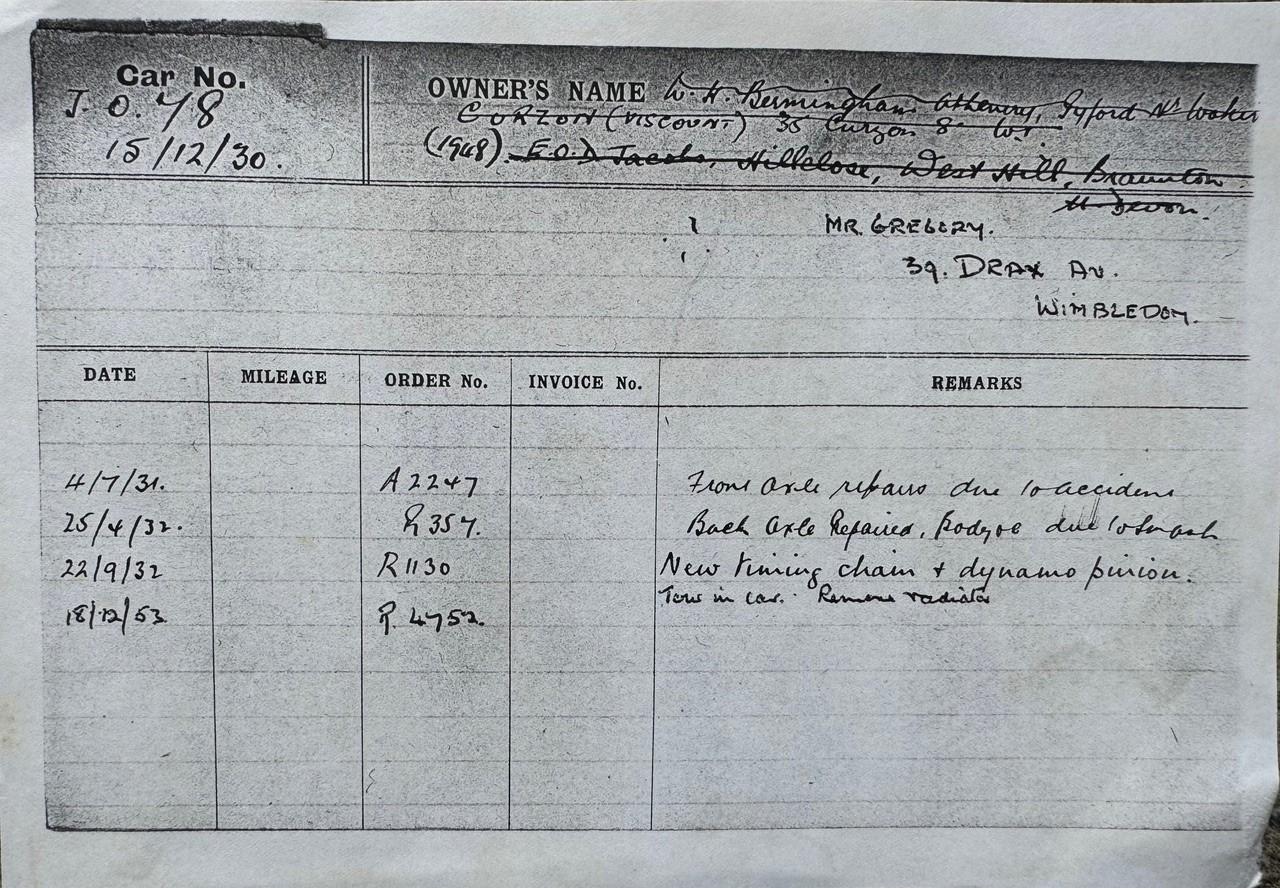 Car No.
J.O.78
15/12/30.
OWNER'S NAME W. H. Bermingham. Athenry, Pyford Nr Woking
CURZON (VISCOUNT) 35 Curzon St W1
(1948) E.O.D Jacobs, Hillclose, West Hill, Braunton
N. Devon.
MR. GREGORY.
39. DRAX AV.
WIMBLEDON.
DATE MILEAGE ORDER No. INVOICE No. REMARKS
4/7/31. A2247 Front axle repairs due to accident
25/4/32. R357. Back Axle Repaired, due to smash
22/9/32 R1130 New timing chain + dynamo pinion.
18/12/53 R. 4752. Tow in car. Remove radiator